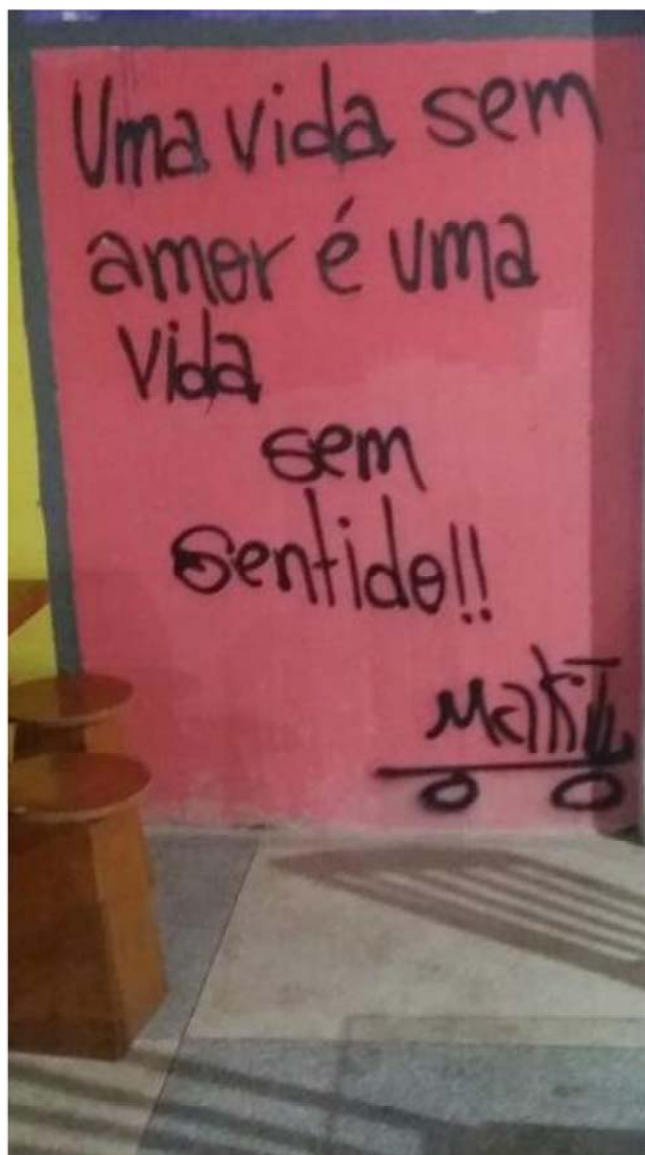 Uma vida sem
amor é uma
vida
sem
sentido!!